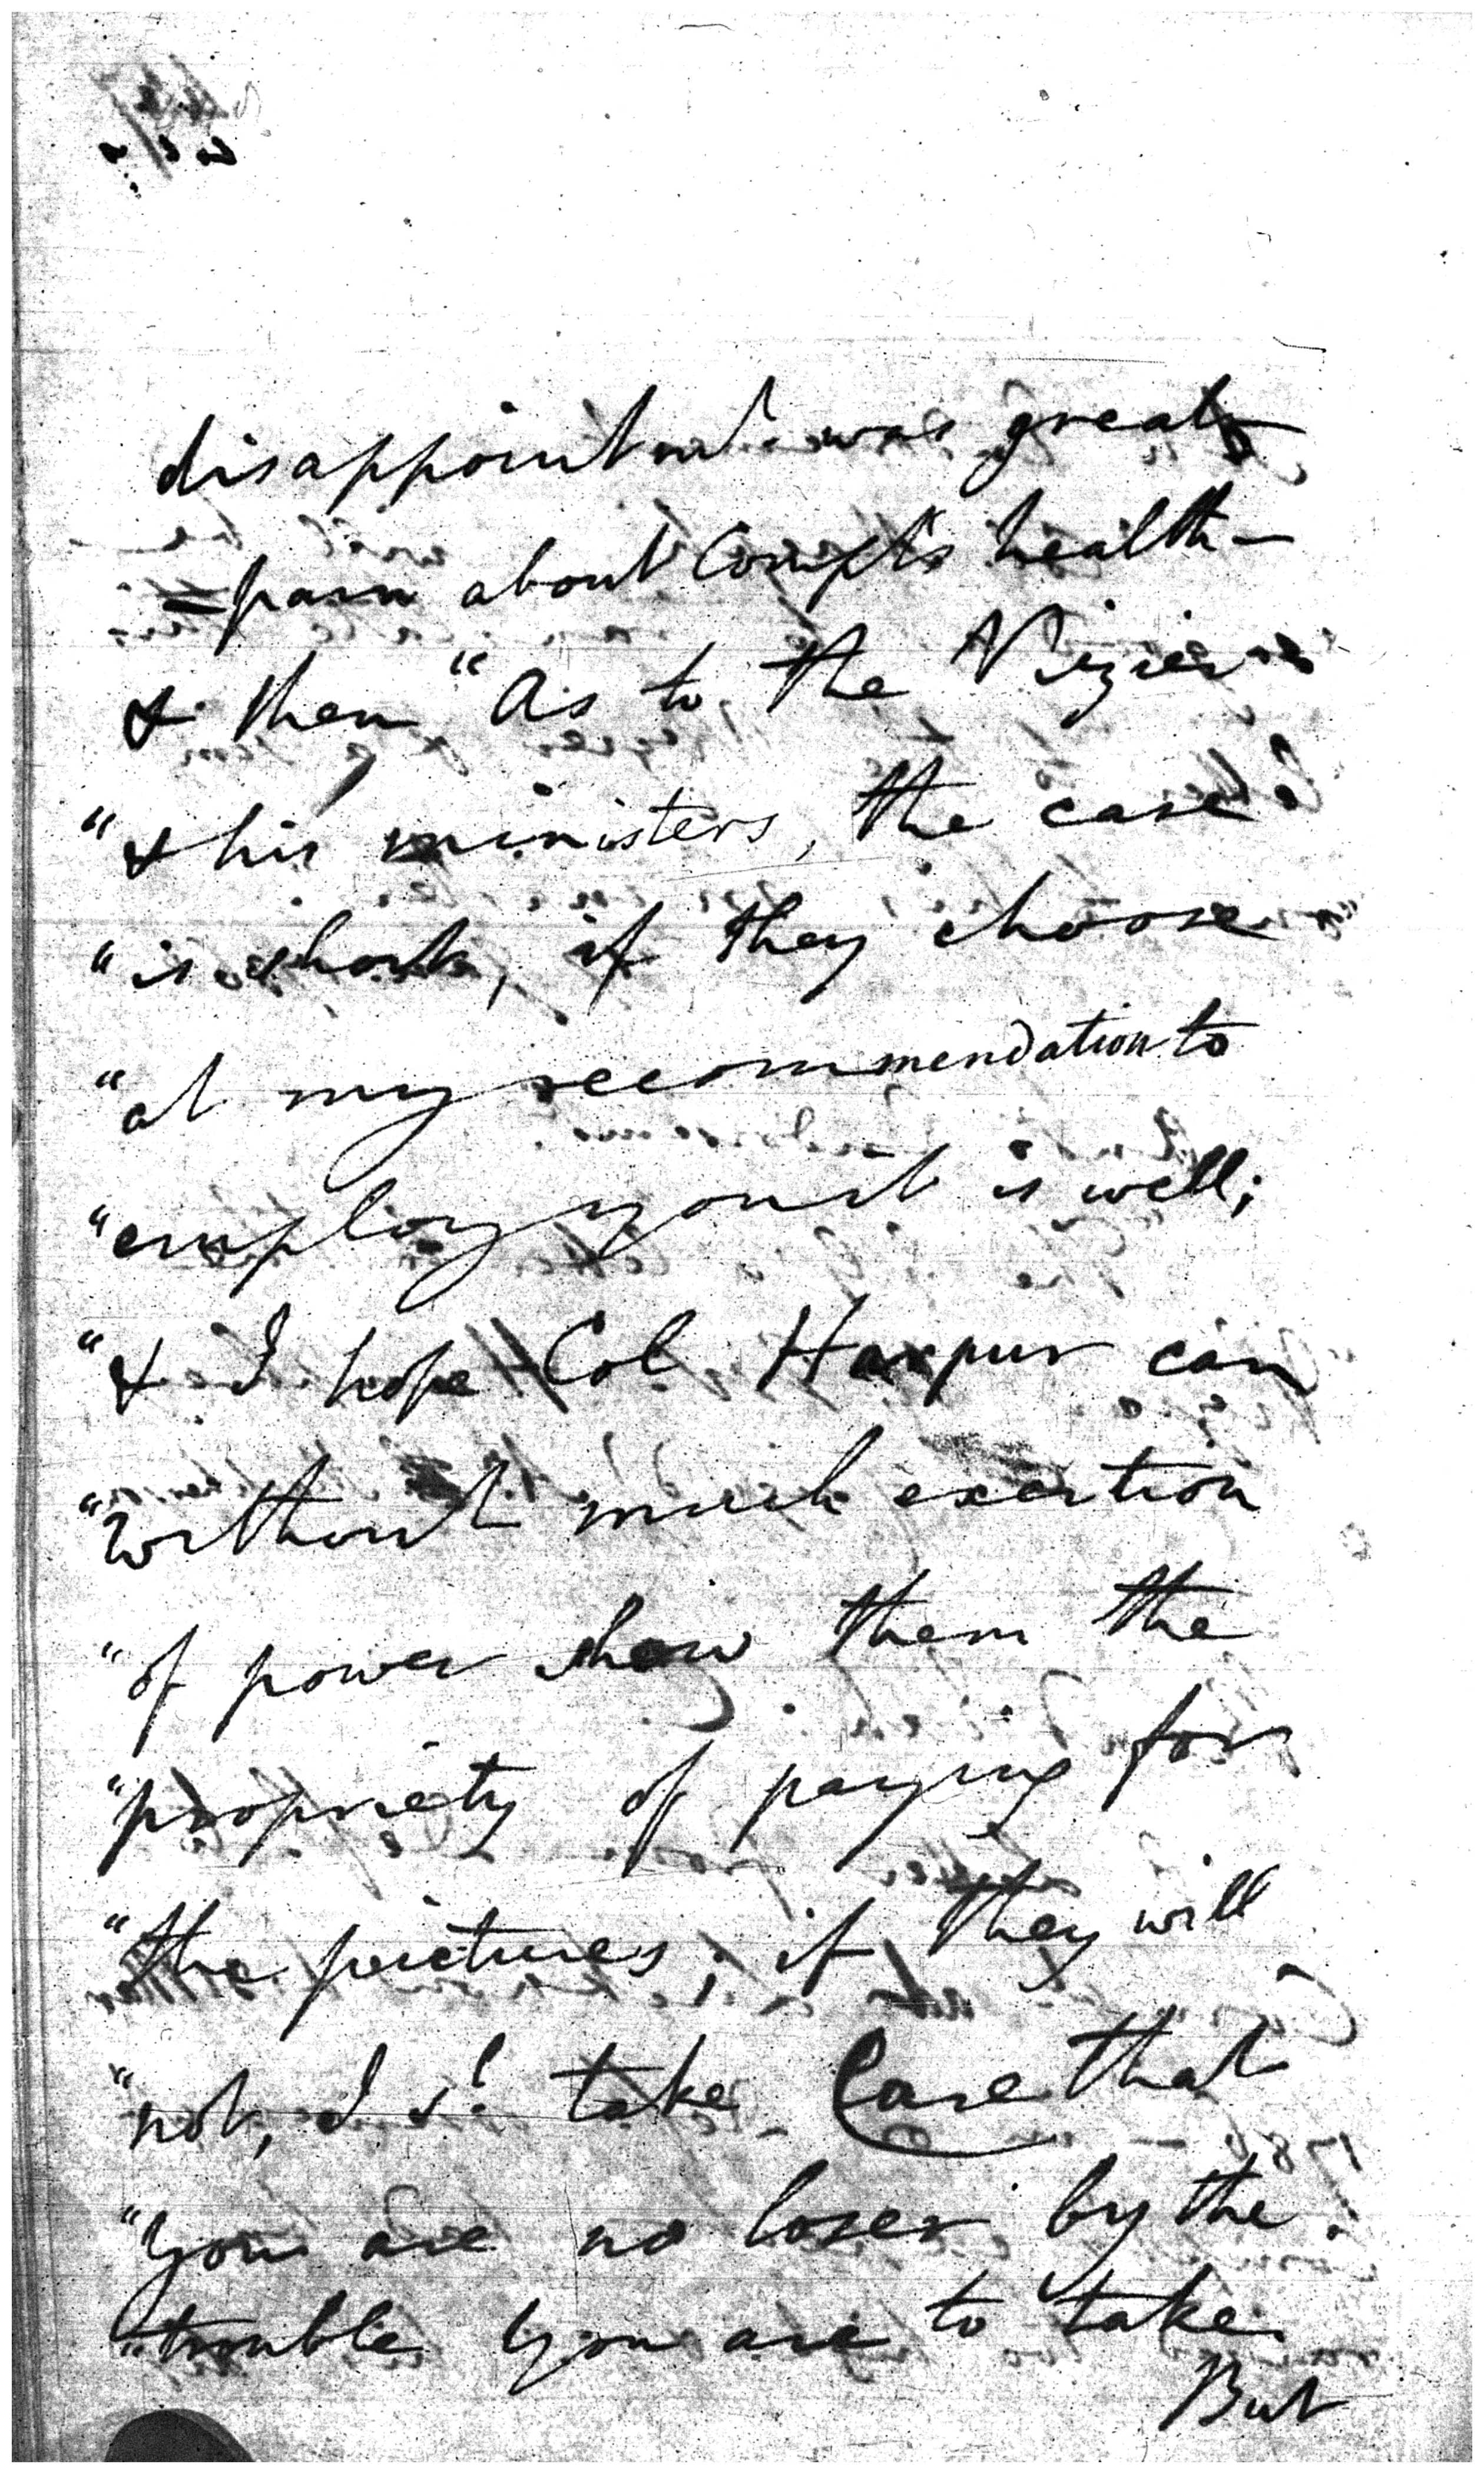 disappointmt was great
– pain about Compt's health –
& then "As to the Vizier
"& his ministers, the case
"is short, if they choose
"at my recommendation to
"employ you it is well;
"& I hope Col Harpur can
"without much exertion
"of power show them the
"propriety of paying for
"the pictures; if they will
"not, I sl. take Care that
"you are no loser by the
"trouble you are to take.
But